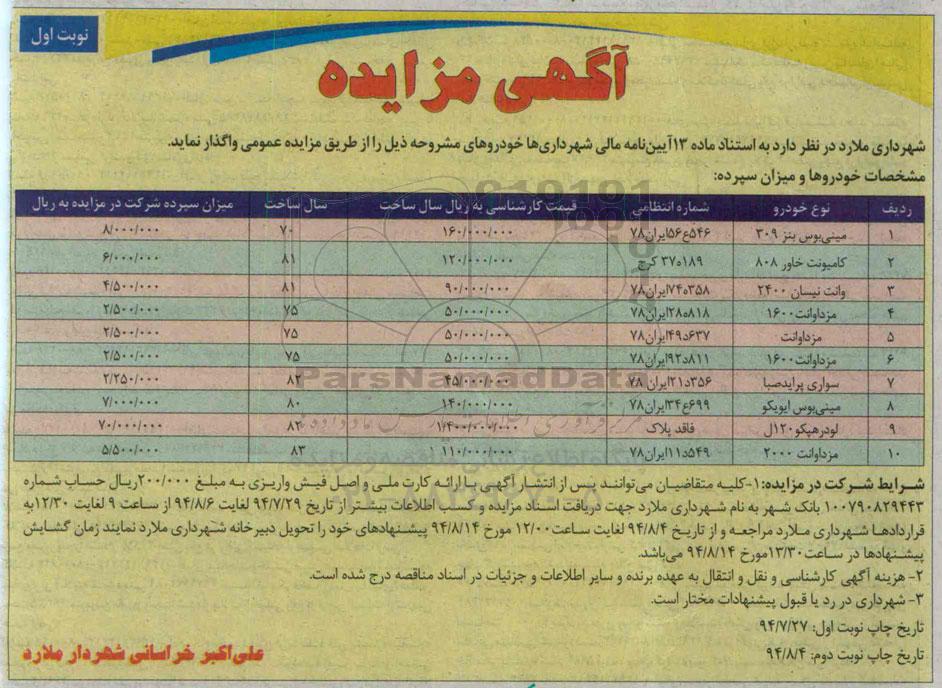 نوبت اول
آگهی مزایده
شهرداری ملارد در نظر دارد به استناد ماده ۱۳آیین‌نامه مالی شهرداری‌ها خودروهای مشروحه ذیل را از طریق مزایده عمومی واگذار نماید.
مشخصات خودروها و میزان سپرده:
ردیف نوع خودرو شماره انتظامی قیمت کارشناسی به ریال سال ساخت سال ساخت میزان سپرده شرکت در مزایده به ریال
۱ مینی‌بوس بنز ۳۰۹ ۵۴۶ع۵۶ایران۷۸ ۱۶۰/۰۰۰/۰۰۰ ۷۰ ۸/۰۰۰/۰۰۰
۲ کامیونت خاور ۸۰۸ ۳۷۰۱۸۹ کرج ۱۲۰/۰۰۰/۰۰۰ ۸۱ ۶/۰۰۰/۰۰۰
۳ وانت نیسان ۲۴۰۰ ۹۰/۰۰۰/۰۰۰ ۸۱ ۴/۵۰۰/۰۰۰
۴ مزداوانت۱۶۰۰ ۵۰/۰۰۰/۰۰۰ ۷۵ ۲/۵۰۰/۰۰۰
۵ مزداوانت ۶۳۷د۴۹ایران۷۸ ۵۰/۰۰۰/۰۰۰ ۷۵ ۲/۵۰۰/۰۰۰
۶ مزداوانت۱۶۰۰ ۸۱۱د۹۲ایران۷۸ ۵۰/۰۰۰/۰۰۰ ۷۵ ۲/۵۰۰/۰۰۰
۷ سواری پرایدصبا ۳۵۶د۲۱ایران ۷۸ ۴۵/۰۰۰/۰۰۰ ۸۲ ۲/۲۵۰/۰۰۰
۸ مینی‌بوس ایویکو ۶۹۹ع۳۴ایران۷۸ ۱۴۰/۰۰۰/۰۰۰ ۸۰ ۷/۰۰۰/۰۰۰
۹ لودرهپکو۱۲۰ال فاقد پلاک ۱/۴۰۰/۰۰۰/۰۰۰ ۸۲ ۷۰/۰۰۰/۰۰۰
۱۰ مزداوانت ۲۰۰۰ ۵۴۹د۱۱ایران۷۸ ۱۱۰/۰۰۰/۰۰۰ ۸۳ ۵/۵۰۰/۰۰۰
ParsNamadData
شرایط شرکت در مزایده: ۱-کلیه متقاضیان می‌توانند پس از انتشار آگهی با ارائه کارت ملی و اصل فیش واریزی به مبلغ ۲۰۰/۰۰۰ریال حساب شماره
۱۰۰۷۹۰۸۲۹۴۴۳ بانک شهر به نام شهرداری ملارد جهت دریافت اسناد مزایده و کسب اطلاعات بیشتر از تاریخ ۹۴/۷/۲۹ لغایت ۹۴/۸/۶ از ساعت ۹ لغایت ۱۲/۳۰به
قراردادها شهرداری ملارد مراجعه و از تاریخ ۹۴/۸/۴ لغایت ساعت۱۲/۰۰ مورخ ۹۴/۸/۱۴ پیشنهادهای خود را تحویل دبیرخانه شهرداری ملارد نمایند زمان گشایش
پیشنهادها در ساعت۱۳/۳۰مورخ ۹۴/۸/۱۴ می‌باشد.
۲- هزینه آگهی کارشناسی و نقل و انتقال به عهده برنده و سایر اطلاعات و جزئیات در اسناد مناقصه درج شده است.
۳- شهرداری در رد یا قبول پیشنهادات مختار است.
تاریخ چاپ نوبت اول: ۹۴/۷/۲۷
تاریخ چاپ نوبت دوم: ۹۴/۸/۴
علی‌اکبر خراسانی شهردار ملارد